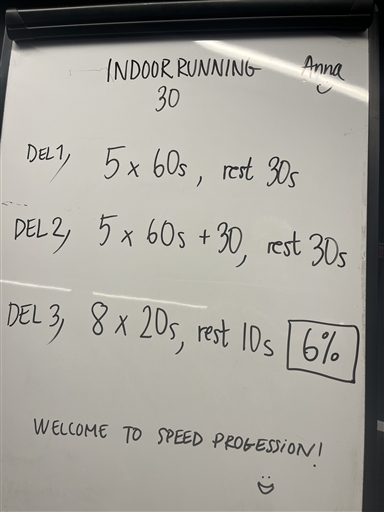 INDOOR RUNNING Anna
30
DEL 1, 5 x 60s, rest 30s
DEL 2, 5 x 60s + 30, rest 30s
DEL 3, 8 x 20s, rest 10s 6%
WELCOME TO SPEED PROGESSION!